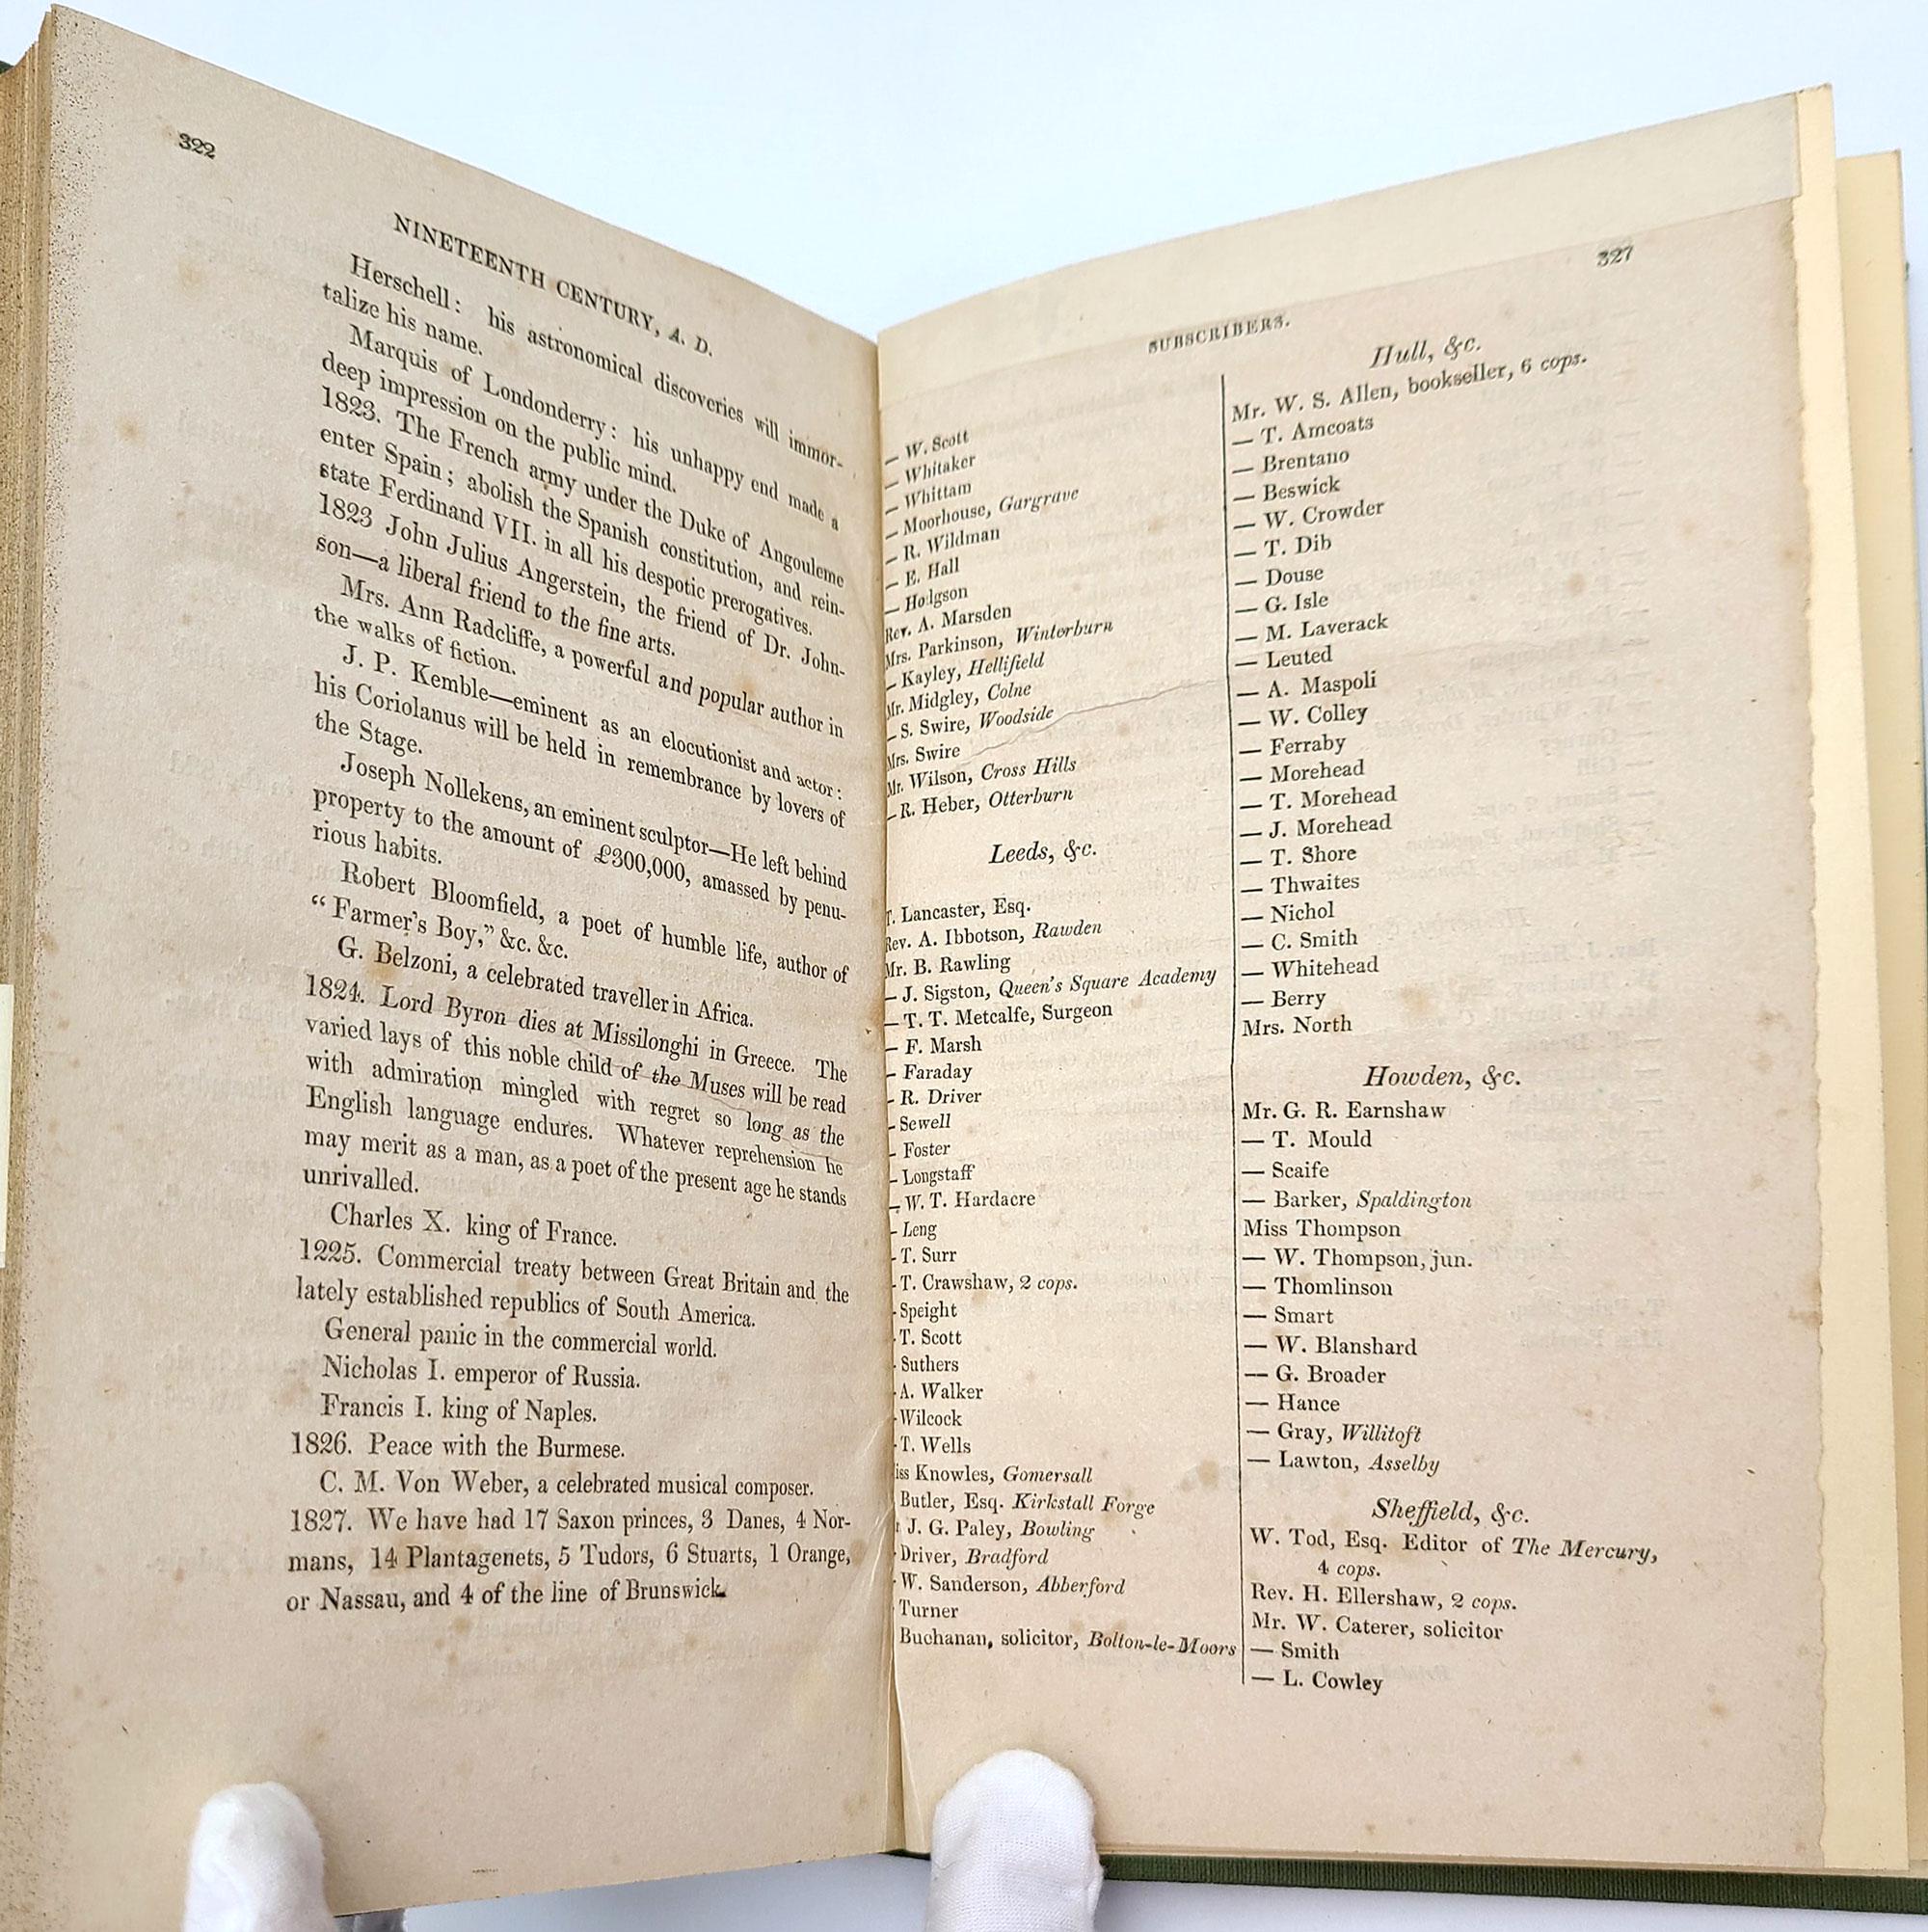 322
NINETEENTH CENTURY, A. D.
Herschell: his astronomical discoveries will immor-
talize his name.
Marquis of Londonderry: his unhappy end made a
deep impression on the public mind.
1823. The French army under the Duke of Angouleme
enter Spain; abolish the Spanish constitution, and rein-
state Ferdinand VII. in all his despotic prerogatives.
1823 John Julius Angerstein, the friend of Dr. John-
son—a liberal friend to the fine arts.
Mrs. Ann Radcliffe, a powerful and popular author in
the walks of fiction.
J. P. Kemble—eminent as an elocutionist and actor:
his Coriolanus will be held in remembrance by lovers of
the Stage.
Joseph Nollekens, an eminent sculptor—He left behind
property to the amount of £300,000, amassed by penu-
rious habits.
Robert Bloomfield, a poet of humble life, author of
“Farmer's Boy,” &c. &c.
G. Belzoni, a celebrated traveller in Africa.
1824. Lord Byron dies at Missilonghi in Greece. The
varied lays of this noble child of the Muses will be read
with admiration mingled with regret so long as the
English language endures. Whatever reprehension he
may merit as a man, as a poet of the present age he stands
unrivalled.
Charles X. king of France.
1225. Commercial treaty between Great Britain and the
lately established republics of South America.
General panic in the commercial world.
Nicholas I. emperor of Russia.
Francis I. king of Naples.
1826. Peace with the Burmese.
C. M. Von Weber, a celebrated musical composer.
1827. We have had 17 Saxon princes, 3 Danes, 4 Nor-
mans, 14 Plantagenets, 5 Tudors, 6 Stuarts, 1 Orange,
or Nassau, and 4 of the line of Brunswick.
327
SUBSCRIBERS.
— W. Scott
— Whitaker
— Whittam
— Moorhouse, Gargrave
— R. Wildman
— E. Hall
— Hodgson
Rev. A. Marsden
Mrs. Parkinson, Winterburn
— Kayley, Hellifield
Mr. Midgley, Colne
— S. Swire, Woodside
Mrs. Swire
Mr. Wilson, Cross Hills
— R. Heber, Otterburn
Leeds, &c.
T. Lancaster, Esq.
Rev. A. Ibbotson, Rawden
Mr. B. Rawling
— J. Sigston, Queen's Square Academy
— T. T. Metcalfe, Surgeon
— F. Marsh
— Faraday
— R. Driver
- Sewell
- Foster
- Longstaff
— W. T. Hardacre
- Leng
- T. Surr
- T. Crawshaw, 2 cops.
- Speight
- T. Scott
- Suthers
- A. Walker
- Wilcock
- T. Wells
iss Knowles, Gomersall
Butler, Esq. Kirkstall Forge
J. G. Paley, Bowling
- Driver, Bradford
- W. Sanderson, Abberford
Turner
Buchanan, solicitor, Bolton-le-Moors
Hull, &c.
Mr. W. S. Allen, bookseller, 6 cops.
— T. Amcoats
— Brentano
— Beswick
— W. Crowder
— T. Dib
— Douse
— G. Isle
— M. Laverack
— Leuted
— A. Maspoli
— W. Colley
— Ferraby
— Morehead
— T. Morehead
— J. Morehead
— T. Shore
— Thwaites
— Nichol
— C. Smith
— Whitehead
— Berry
Mrs. North
Howden, &c.
Mr. G. R. Earnshaw
— T. Mould
— Scaife
— Barker, Spaldington
Miss Thompson
— W. Thompson, jun.
— Thomlinson
— Smart
— W. Blanshard
— G. Broader
— Hance
— Gray, Willitoft
— Lawton, Asselby
Sheffield, &c.
W. Tod, Esq. Editor of The Mercury,
4 cops.
Rev. H. Ellershaw, 2 cops.
Mr. W. Caterer, solicitor
— Smith
— L. Cowley